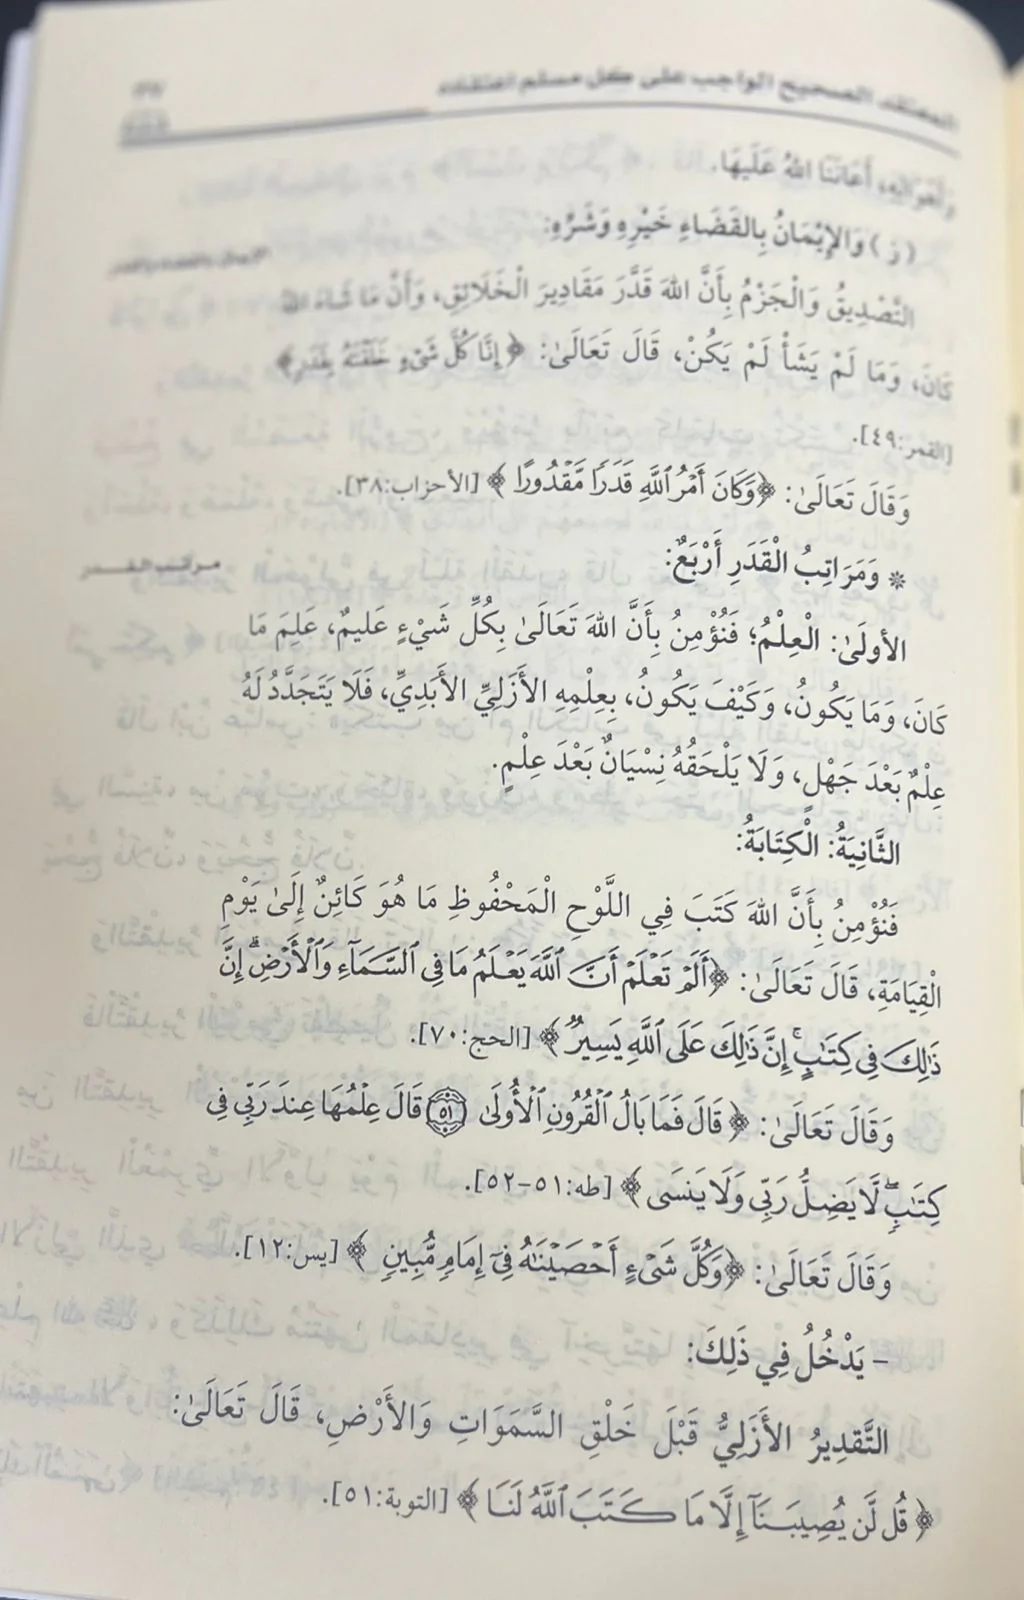 المعتقد الصحيح الواجب على كل مسلم اعتقاده
وَأَهْوَالِهِ، أَعَانَنَا اللهُ عَلَيْهَا.
(ز) وَالإِيْمَانُ بِالقَضَاءِ خَيْرِهِ وَشَرِّهِ:
الإيمان بالقضاء والقدر
التَّصْدِيقُ وَالْجَزْمُ بِأَنَّ اللهَ قَدَّرَ مَقَادِيرَ الْخَلَائِقِ، وَأَنَّ مَا شَاءَ اللهُ
كَانَ، وَمَا لَمْ يَشَأْ لَمْ يَكُنْ، قَالَ تَعَالَىٰ: ﴿إِنَّا كُلَّ شَىْءٍ خَلَقْنَٰهُ بِقَدَرٍ﴾
[القمر:٤٩].
وَقَالَ تَعَالَىٰ: ﴿وَكَانَ أَمْرُ ٱللَّهِ قَدَرًا مَّقْدُورًا﴾ [الأحزاب:٣٨].
❊ وَمَرَاتِبُ الْقَدَرِ أَرْبَعٌ:
مراتب القدر
الأولَىٰ: الْعِلْمُ؛ فَنُؤْمِنُ بِأَنَّ اللهَ تَعَالَىٰ بِكُلِّ شَيْءٍ عَلِيمٌ، عَلِمَ مَا
كَانَ، وَمَا يَكُونُ، وَكَيْفَ يَكُونُ، بِعِلْمِهِ الأَزَلِيِّ الأَبَدِيِّ، فَلَا يَتَجَدَّدُ لَهُ
عِلْمٌ بَعْدَ جَهْلٍ، وَلَا يَلْحَقُهُ نِسْيَانٌ بَعْدَ عِلْمٍ.
الثَّانِيَةُ: الْكِتَابَةُ:
فَنُؤْمِنُ بِأَنَّ اللهَ كَتَبَ فِي اللَّوْحِ الْمَحْفُوظِ مَا هُوَ كَائِنٌ إِلَىٰ يَوْمِ
الْقِيَامَةِ، قَالَ تَعَالَىٰ: ﴿أَلَمْ تَعْلَمْ أَنَّ ٱللَّهَ يَعْلَمُ مَا فِى ٱلسَّمَآءِ وَٱلْأَرْضِ ۗ إِنَّ
ذَٰلِكَ فِى كِتَٰبٍ ۚ إِنَّ ذَٰلِكَ عَلَى ٱللَّهِ يَسِيرٌ﴾ [الحج:٧٠].
وَقَالَ تَعَالَىٰ: ﴿قَالَ فَمَا بَالُ ٱلْقُرُونِ ٱلْأُولَىٰ ۝٥١ قَالَ عِلْمُهَا عِندَ رَبِّى فِى
كِتَٰبٍ ۖ لَّا يَضِلُّ رَبِّى وَلَا يَنسَى﴾ [طه:٥١-٥٢].
وَقَالَ تَعَالَىٰ: ﴿وَكُلَّ شَىْءٍ أَحْصَيْنَٰهُ فِىٓ إِمَامٍ مُّبِينٍ﴾ [يس:١٢].
– يَدْخُلُ فِي ذَلِكَ:
التَّقدِيرُ الأَزَلِيُّ قَبْلَ خَلْقِ السَّمَوَاتِ وَالأَرْضِ، قَالَ تَعَالَىٰ:
﴿قُل لَّن يُصِيبَنَآ إِلَّا مَا كَتَبَ ٱللَّهُ لَنَا﴾ [التوبة:٥١].